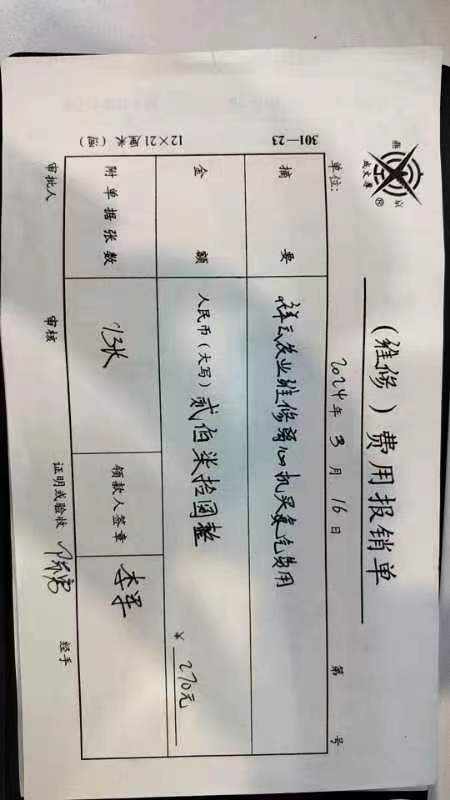 （维修）费用报销单
强
成文厚
®
单位：
2024年3月16日
第 号
摘要
祥云农业维修离心机买氮气费用
金额
人民币（大写）贰佰柒拾圆整
￥270元
附单据张数
13张
领款人签章
李军
审批人
审核
证明或验收
经手
301—23
12×21厘米（通）